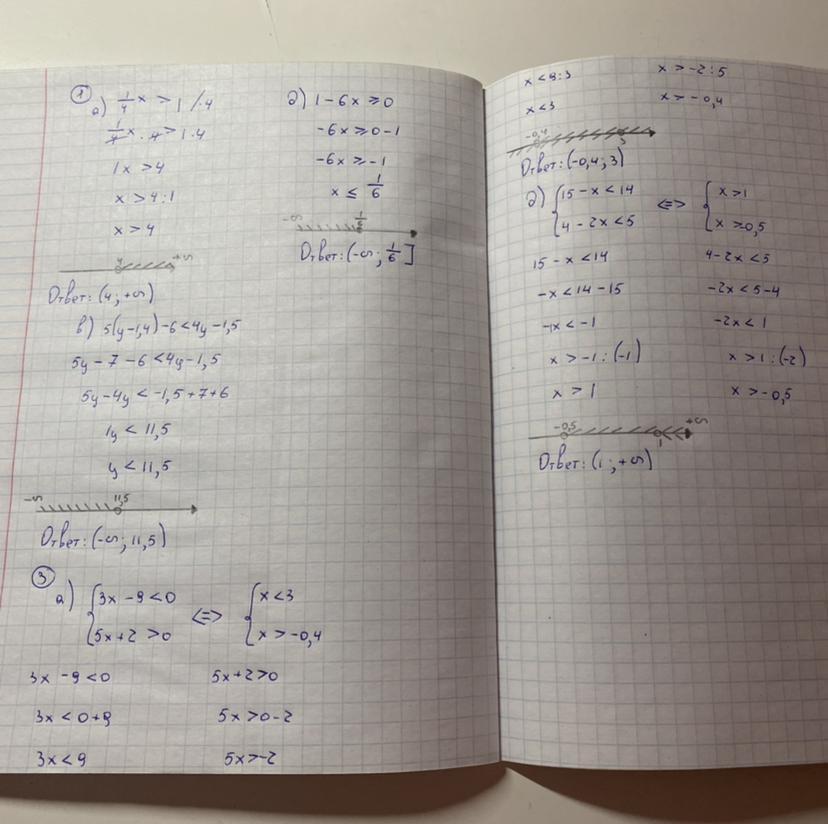 ① а) 1/4 x > 1 / ·4
1/4 x · 4 > 1·4
1x > 4
x > 4:1
x > 4
4 +∞
Ответ: (4; +∞)
б) 1 - 6x ≥ 0
-6x ≥ 0-1
-6x ≥ -1
x ≤ 1/6
-∞ 1/6
Ответ: (-∞; 1/6]
в) 5(y-1,4)-6<4y-1,5
5y-7-6<4y-1,5
5y-4y < -1,5+7+6
1y < 11,5
y < 11,5
-∞ 11,5
Ответ: (-∞; 11,5)
③ а) {3x-9<0 <=> {x<3
{5x+2>0 {x>-0,4
3x-9<0 5x+2>0
3x<0+9 5x>0-2
3x<9 5x>-2
x<9:3 x>-2:5
x<3 x>-0,4
-0,4 3
Ответ: (-0,4; 3)
б) {15-x<14 <=> {x>1
{4-2x<5 {x>0,5
15-x<14 4-2x<5
-x<14-15 -2x<5-4
-1x<-1 -2x<1
x>-1:(-1) x>1:(-2)
x>1 x>-0,5
-0,5 1 +∞
Ответ: (1; +∞)